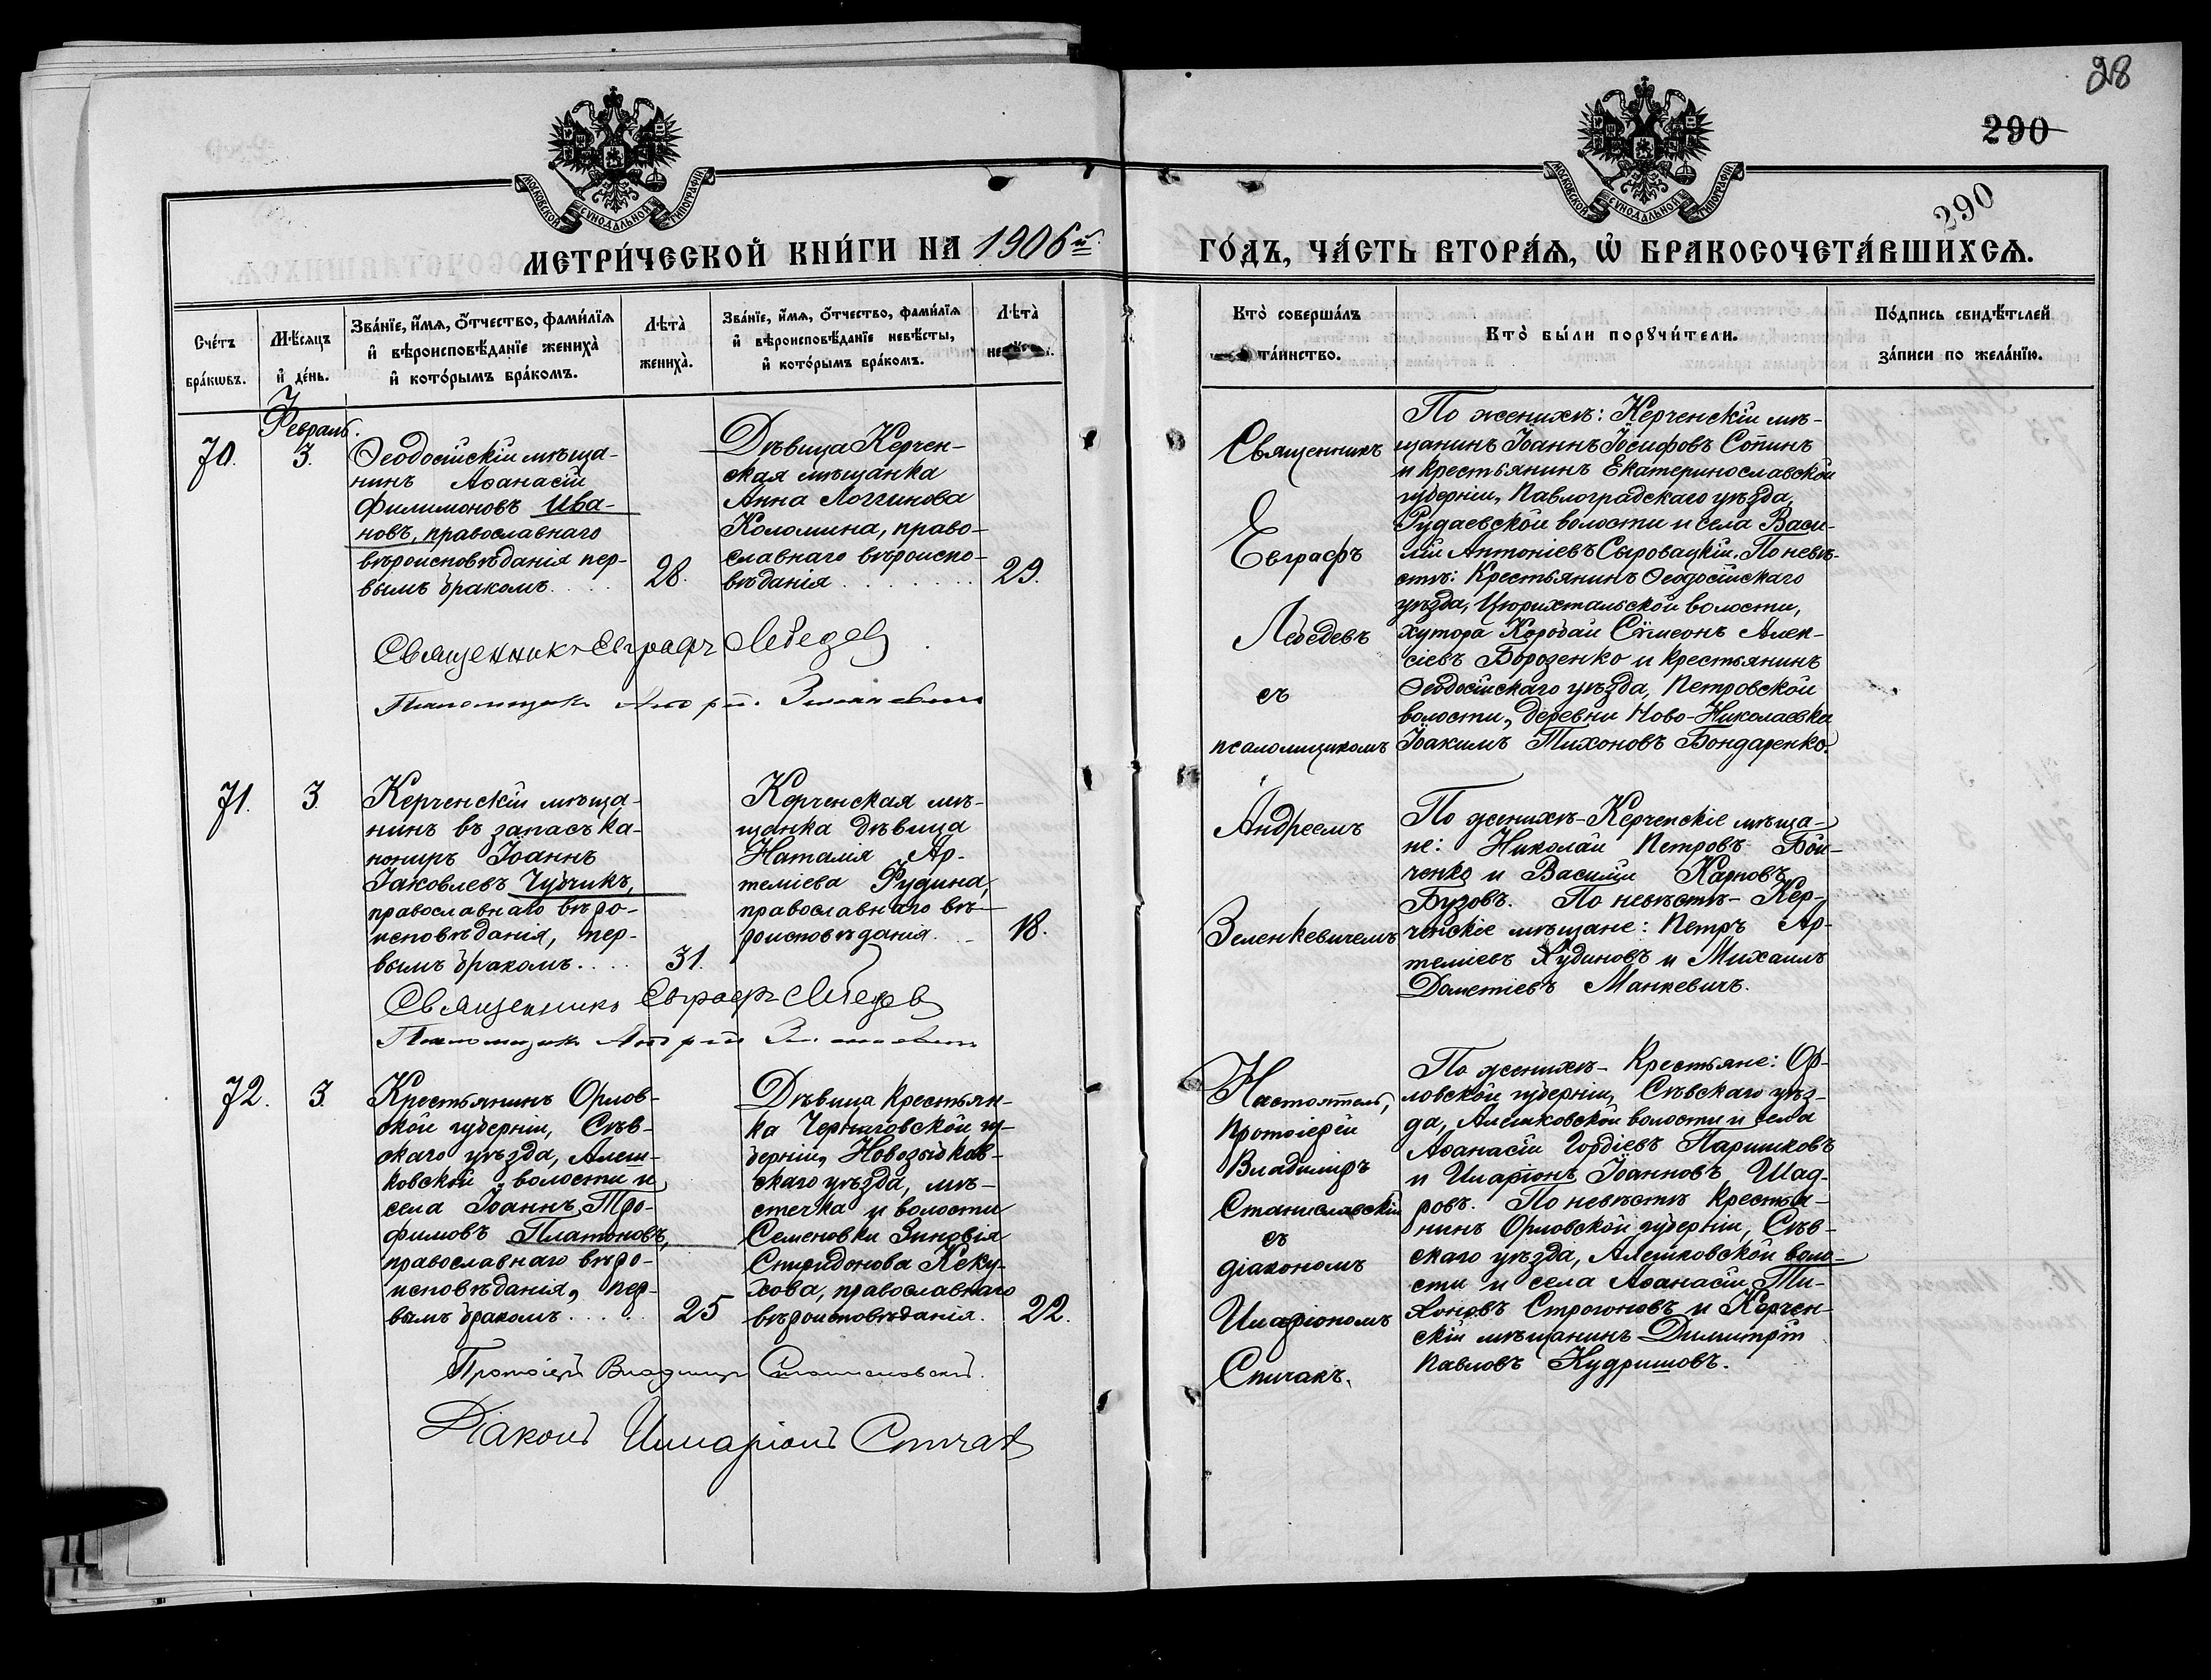 28
290
290
МОСКОВСКОЙ СѴНОДАЛЬНОЙ ТИПОГРАФІИ
МОСКОВСКОЙ СѴНОДАЛЬНОЙ ТИПОГРАФІИ
МЕТРИ́ЧЕСКОЙ КНИ́ГИ НА 1906й
ГО́ДЪ, ЧА́СТЬ ВТОРА́Ѧ, Ѡ҆ БРАКОСОЧЕТА́ВШИХСѦ.
Сче́тъ
бра́кѡвъ.
Мѣ́сяцъ
и҆ де́нь.
Зва́нїе, и҆́мя, о҆́тчество, фами́лїя
и҆ вѣроисповѣ́данїе жениха̀
и҆ кото́рымъ бра́комъ.
Лѣта̀
жениха̀.
Зва́нїе, и҆́мя, о҆́тчество, фами́лїя
и҆ вѣроисповѣ́данїе невѣ́сты,
и҆ кото́рымъ бра́комъ.
Лѣта̀
Кто̀ соверша́лъ
та́инство.
Кто̀ бы́ли порꙋчи́тели.
По́дпись свидѣ́телей
за́писи по жела́нїю.
Февраль.
70.
3.
Ѳеодосійскій мѣща-
нинъ Аѳанасій
Филимоновъ Ива-
новъ, православнаго
вѣроисповѣданія пер-
вымъ бракомъ. . . .
28.
Дѣвица Керчен-
ская мѣщанка
Анна Логгинова
Коломина, право-
славнаго вѣроиспо-
вѣданія . . . . .
29.
Священникъ Евграфъ Лебедев
Псаломщикъ Андрей Зеленкевичъ
Священникъ
Евграфъ
Лебедевъ
съ
псаломщикомъ
Андреемъ
Зеленкевичемъ
По женихѣ: Керченскій мѣ-
щанинъ Іоаннъ Іосифовъ Сопинъ
и крестьянинъ Екатеринославской
губерніи, Павлоградскаго уѣзда,
Рудаевской волости и села Васи-
лій Антоніевъ Сыровацкій. По невѣ-
стѣ: Крестьянинъ Ѳеодосійскаго
уѣзда, Цюрихтальской волости,
хутора Коробай Сѵмеонъ Алек-
сіевъ Борозенко и крестьянинъ
Ѳеодосійскаго уѣзда, Петровской
волости, деревни Ново-Николаевки
Іоакимъ Тихоновъ Бондаренко.
71.
3.
Керченскій мѣща-
нинъ въ запасѣ ка-
нониръ Іоаннъ
Іаковлевъ Чубчикъ,
православнаго вѣро-
исповѣданія, пер-
вымъ бракомъ. . . .
31.
Керченская мѣ-
щанка дѣвица
Наталія Ар-
теміева Рудина,
православнаго вѣ-
роисповѣданія. . .
18.
Священникъ Евграфъ Лебедев
Псаломщикъ Андрей Зеленкевичъ
По женихѣ-Керченскіе мѣща-
не: Николай Петровъ Бой-
ченко и Василій Карповъ
Бузовъ. По невѣстѣ- Кер-
ченскіе мѣщане: Петръ Ар-
теміевъ Худиновъ и Михаилъ
Дометіевъ Манкевичъ.
72.
3.
Крестьянинъ Орлов-
ской губерніи, Сѣв-
скаго уѣзда, Алеш-
ковской волости и
села Іоаннъ Тро-
фимовъ Платоновъ,
православнаго вѣро-
исповѣданія, пер-
вымъ бракомъ. . . .
25
Дѣвица крестьян-
ка Черниговской гу-
берніи, Новозыбков-
скаго уѣзда, мѣ-
стечка и волости
Семеновки Зиновія
Спиридонова Кеку-
хова, православнаго
вѣроисповѣданія.
22.
Протоіерей Владиміръ Станиславскій.
Діаконъ Иларіонъ Спичак
Настоятель,
Протоіерей
Владиміръ
Станиславскій
съ
діакономъ
Иларіономъ
Спичакъ.
По женихѣ- Крестьяне: Ор-
ловской губерніи, Сѣвскаго уѣз-
да, Алешковской волости и села
Аѳанасій Гордіевъ Паришковъ
и Иларіонъ Іоанновъ Шад-
ровъ. По невѣстѣ крестья-
нинъ Орловской губерніи, Сѣв-
скаго уѣзда, Алешковской воло-
сти и села Аѳанасій Ти-
хоновъ Строгоновъ и Керчен-
скій мѣщанинъ Димитрій
Павловъ Кудришовъ.